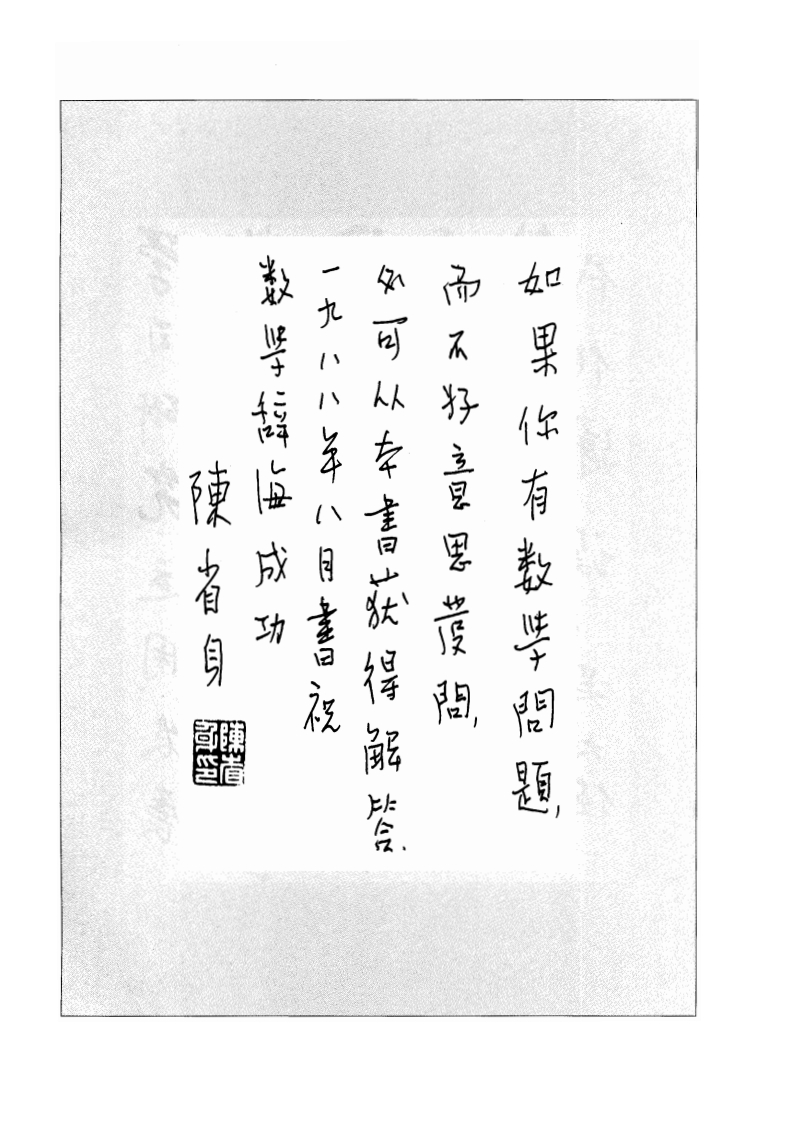 如果你有数学問題,
而不好意思發問,
必可从本書获得解答.
一九八八年八月書祝
数学辞海成功
陳省身
陳省
身印